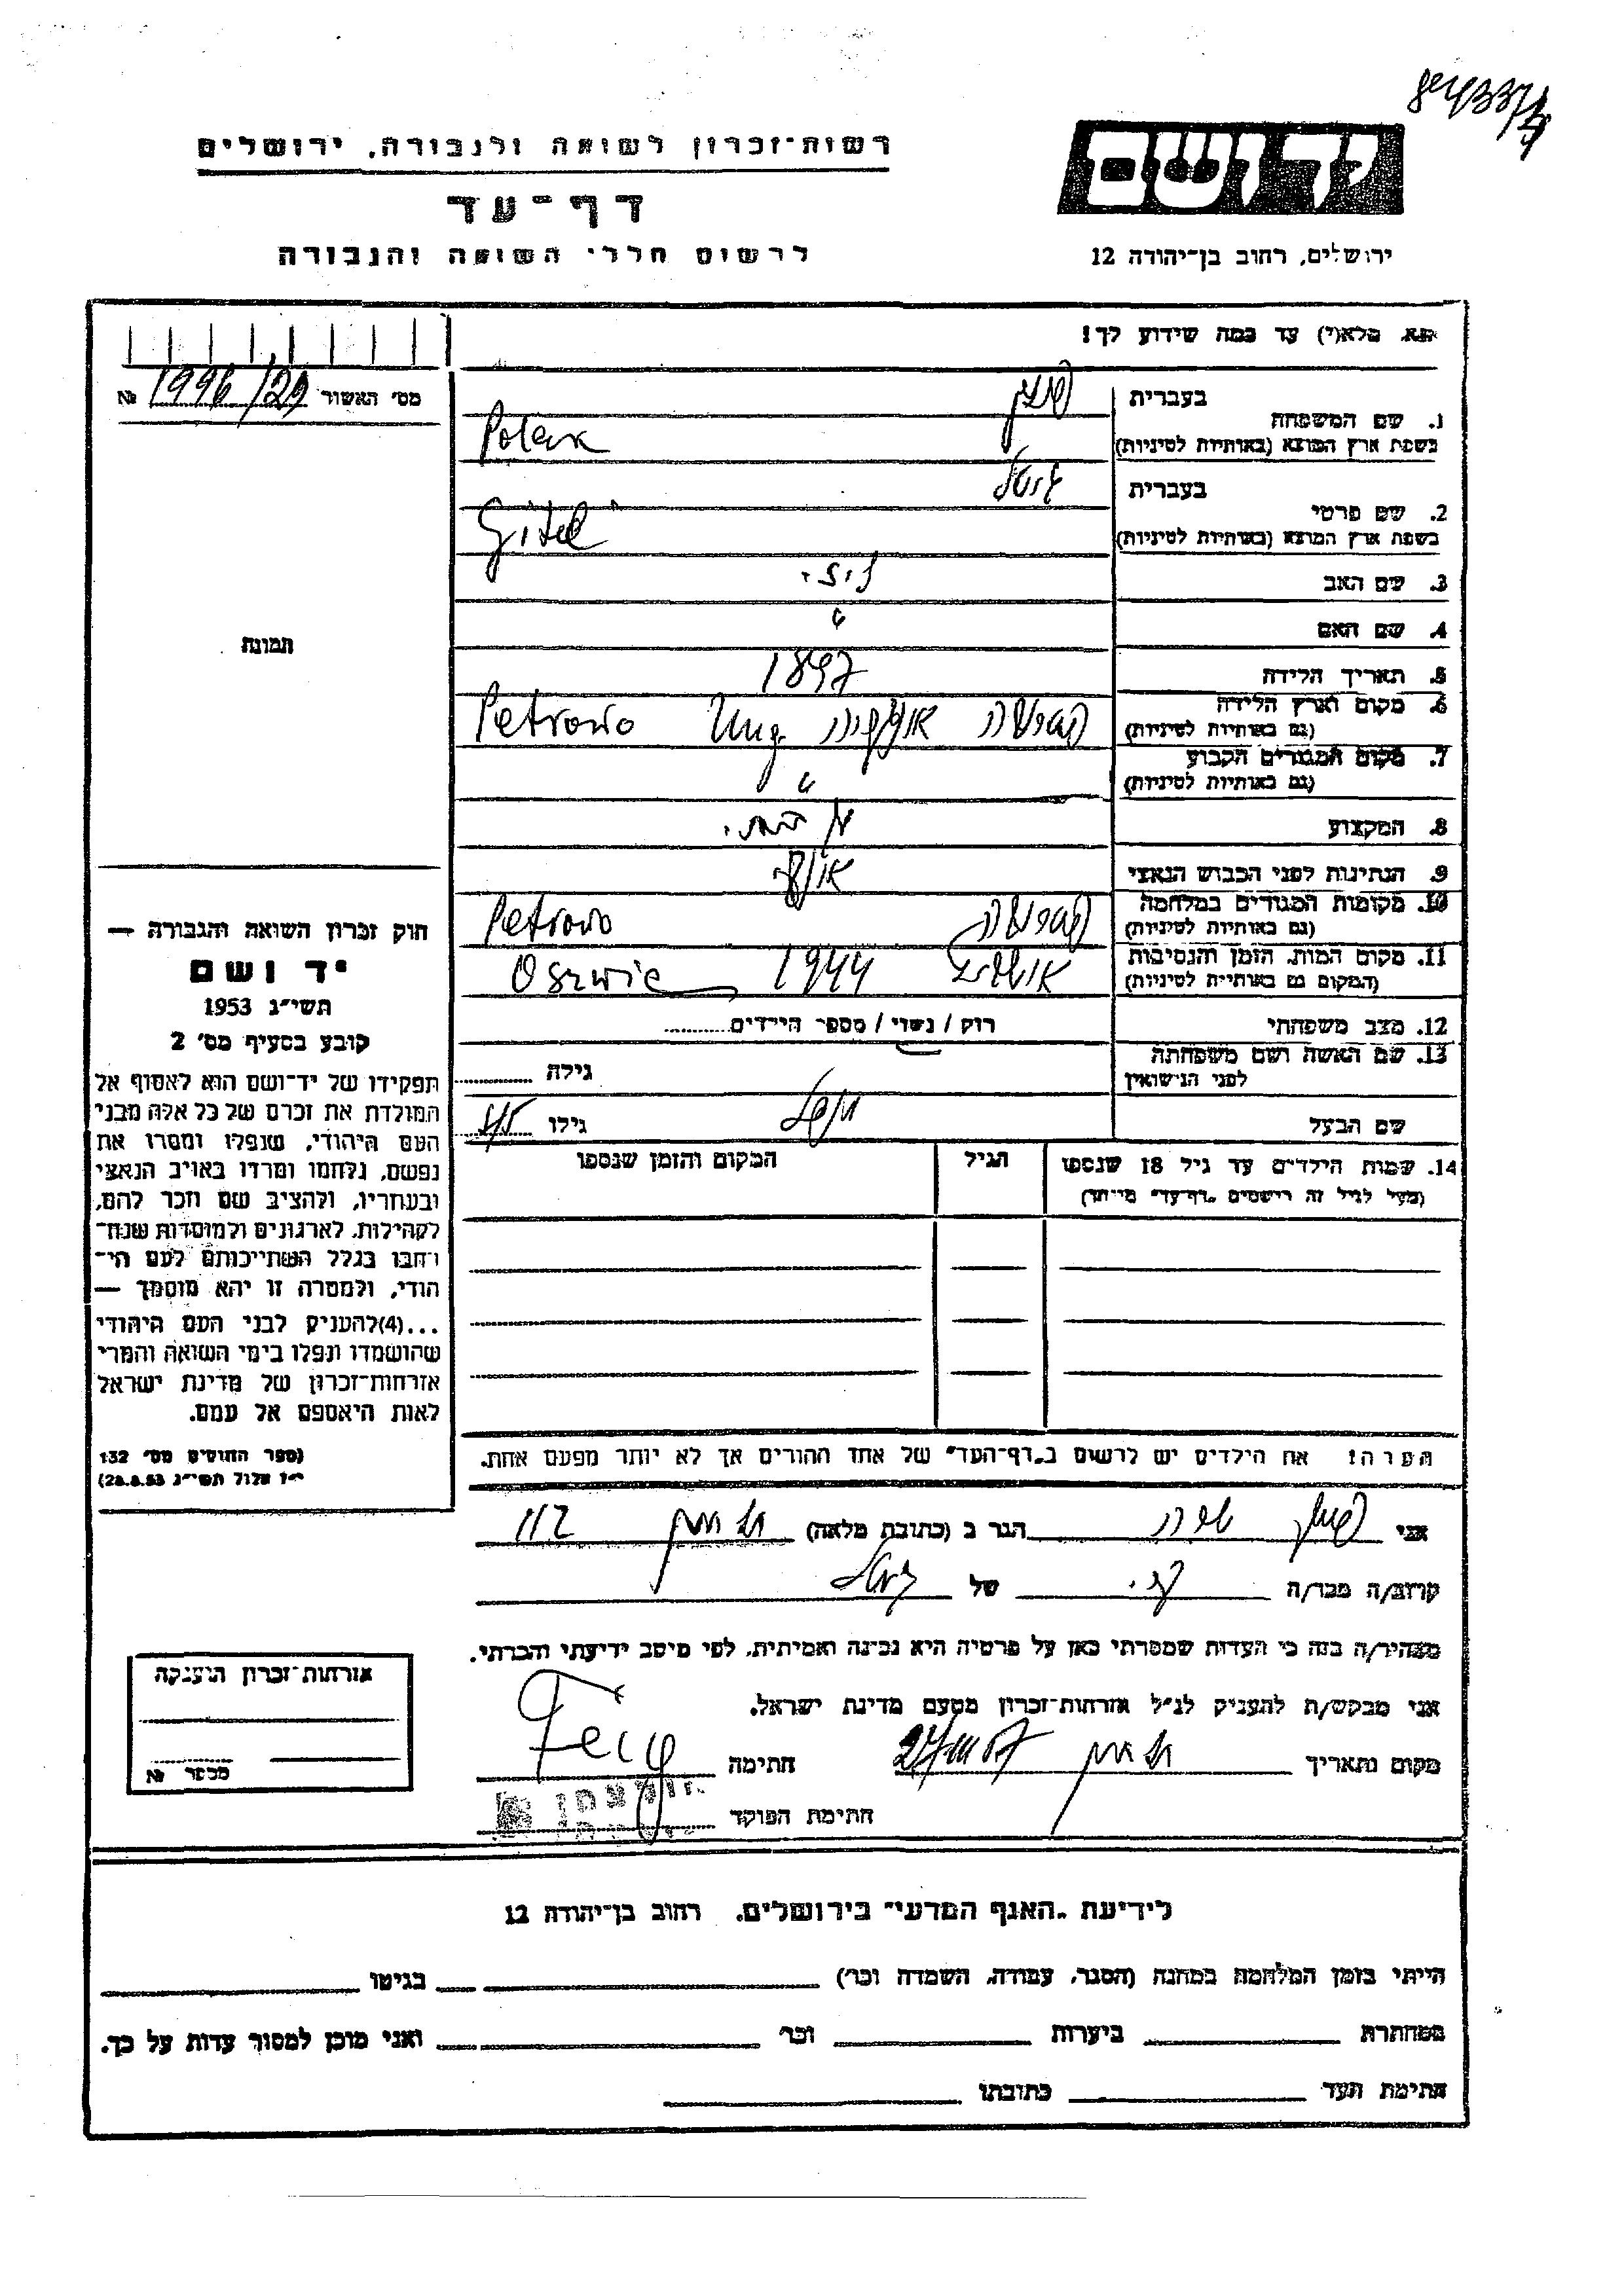 84337/4
רשות־זכרון לשואה ולגבורה, ירושלים
דף־עד
לרשום חללי השואה והגבורה
יד ושם
ירושלים, רחוב בן־יהודה 12
נא מלא(י) עד כמה שידוע לך!
מס׳ האשור 1996/29 №
תמונה
1. שם המשפחה
בעברית
בשפת ארץ המוצא (באותיות לטיניות) Polak
2. שם פרטי
בעברית גיטל
בשפת ארץ המוצא (באותיות לטיניות) Gitel
3. שם האב
4. שם האם
5. תאריך הלידה 1897
6. מקום וארץ הלידה
(גם באותיות לטיניות) Petrowo Ung.
7. מקום המגורים הקבוע
(גם באותיות לטיניות)
8. המקצוע
9. הנתינות לפני הכבוש הנאצי
10. מקומות המגורים במלחמה
(גם באותיות לטיניות) Petrowo
11. מקום המות, הזמן והנסיבות
(המקום גם באותיות לטיניות) 1944 Oszwic
12. מצב משפחתי רוק / נשוי / מספר הילדים
13. שם האשה ושם משפחתה
לפני הנישואין
גילה
שם הבעל
גילו
14. שמות הילדים עד גיל 18 שנספו
(מעל לגיל זה רישמים „דף־עד״ מיוחד)
הגיל
המקום והזמן שנספו
הערה: את הילדים יש לרשום ב„דף־העד״ של אחד ההורים אך לא יותר מפעם אחת.
חוק זכרון השואה והגבורה —
יד ושם
תשי״ג 1953
קובע בסעיף מס׳ 2
תפקידו של יד־ושם הוא לאסוף אל
המולדת את זכרם של כל אלה מבני
העם היהודי, שנפלו ומסרו את
נפשם, נלחמו ומרדו באויב הנאצי
ובעוזריו, ולהציב שם וזכר להם,
לקהילות, לארגונים ולמוסדות שנח־
רבו בגלל השתייכותם לעם הי־
הודי, ולמטרה זו יהא מוסמך —
...(4)להעניק לבני העם היהודי
שהושמדו ונפלו בימי השואה והמרי
אזרחות־זכרון של מדינת ישראל
לאות היאספם אל עמם.
(ספר החוקים מס׳ 132
י״ז אלול תשי״ג 28.8.53)
אני
הגר ב (כתובת מלאה)
קרוב/ה מכר/ה
של גיטל
מצהיר/ה בזה כי העדות שמסרתי כאן על פרטיה היא נכונה ואמיתית, לפי מיטב ידיעתי והכרתי.
אני מבקש/ת להעניק לנ״ל אזרחות־זכרון מטעם מדינת ישראל.
מקום ותאריך
חתימה
חתימת הפוקד
אזרחות־זכרון הוענקה
מספר №
לידיעת „האגף המדעי״ בירושלים, רחוב בן־יהודה 12
הייתי בזמן המלחמה במחנה (הסגר, עבודה, השמדה וכו׳) בגיטו
במחתרת ביערות וכו׳ ואני מוכן למסור עדות על כך.
חתימת העד כתובתו